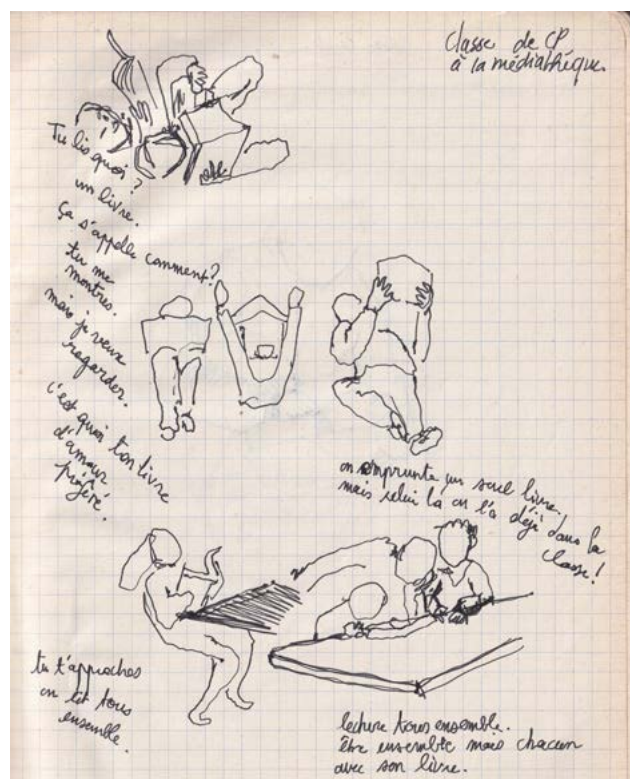 classe de CP
à la médiathèque.
Tu lis quoi ?
un livre.
ça s'appelle comment ?
tu me
montres.
mais je veux
regarder.
c'est quoi ton livre
d'amour
préféré.
on emprunte un seul livre,
mais celui la on l'a déjà dans la
classe !
tu t'approches
on lit tous
ensemble.
lecture tous ensemble.
être ensemble mais chacun
avec son livre.